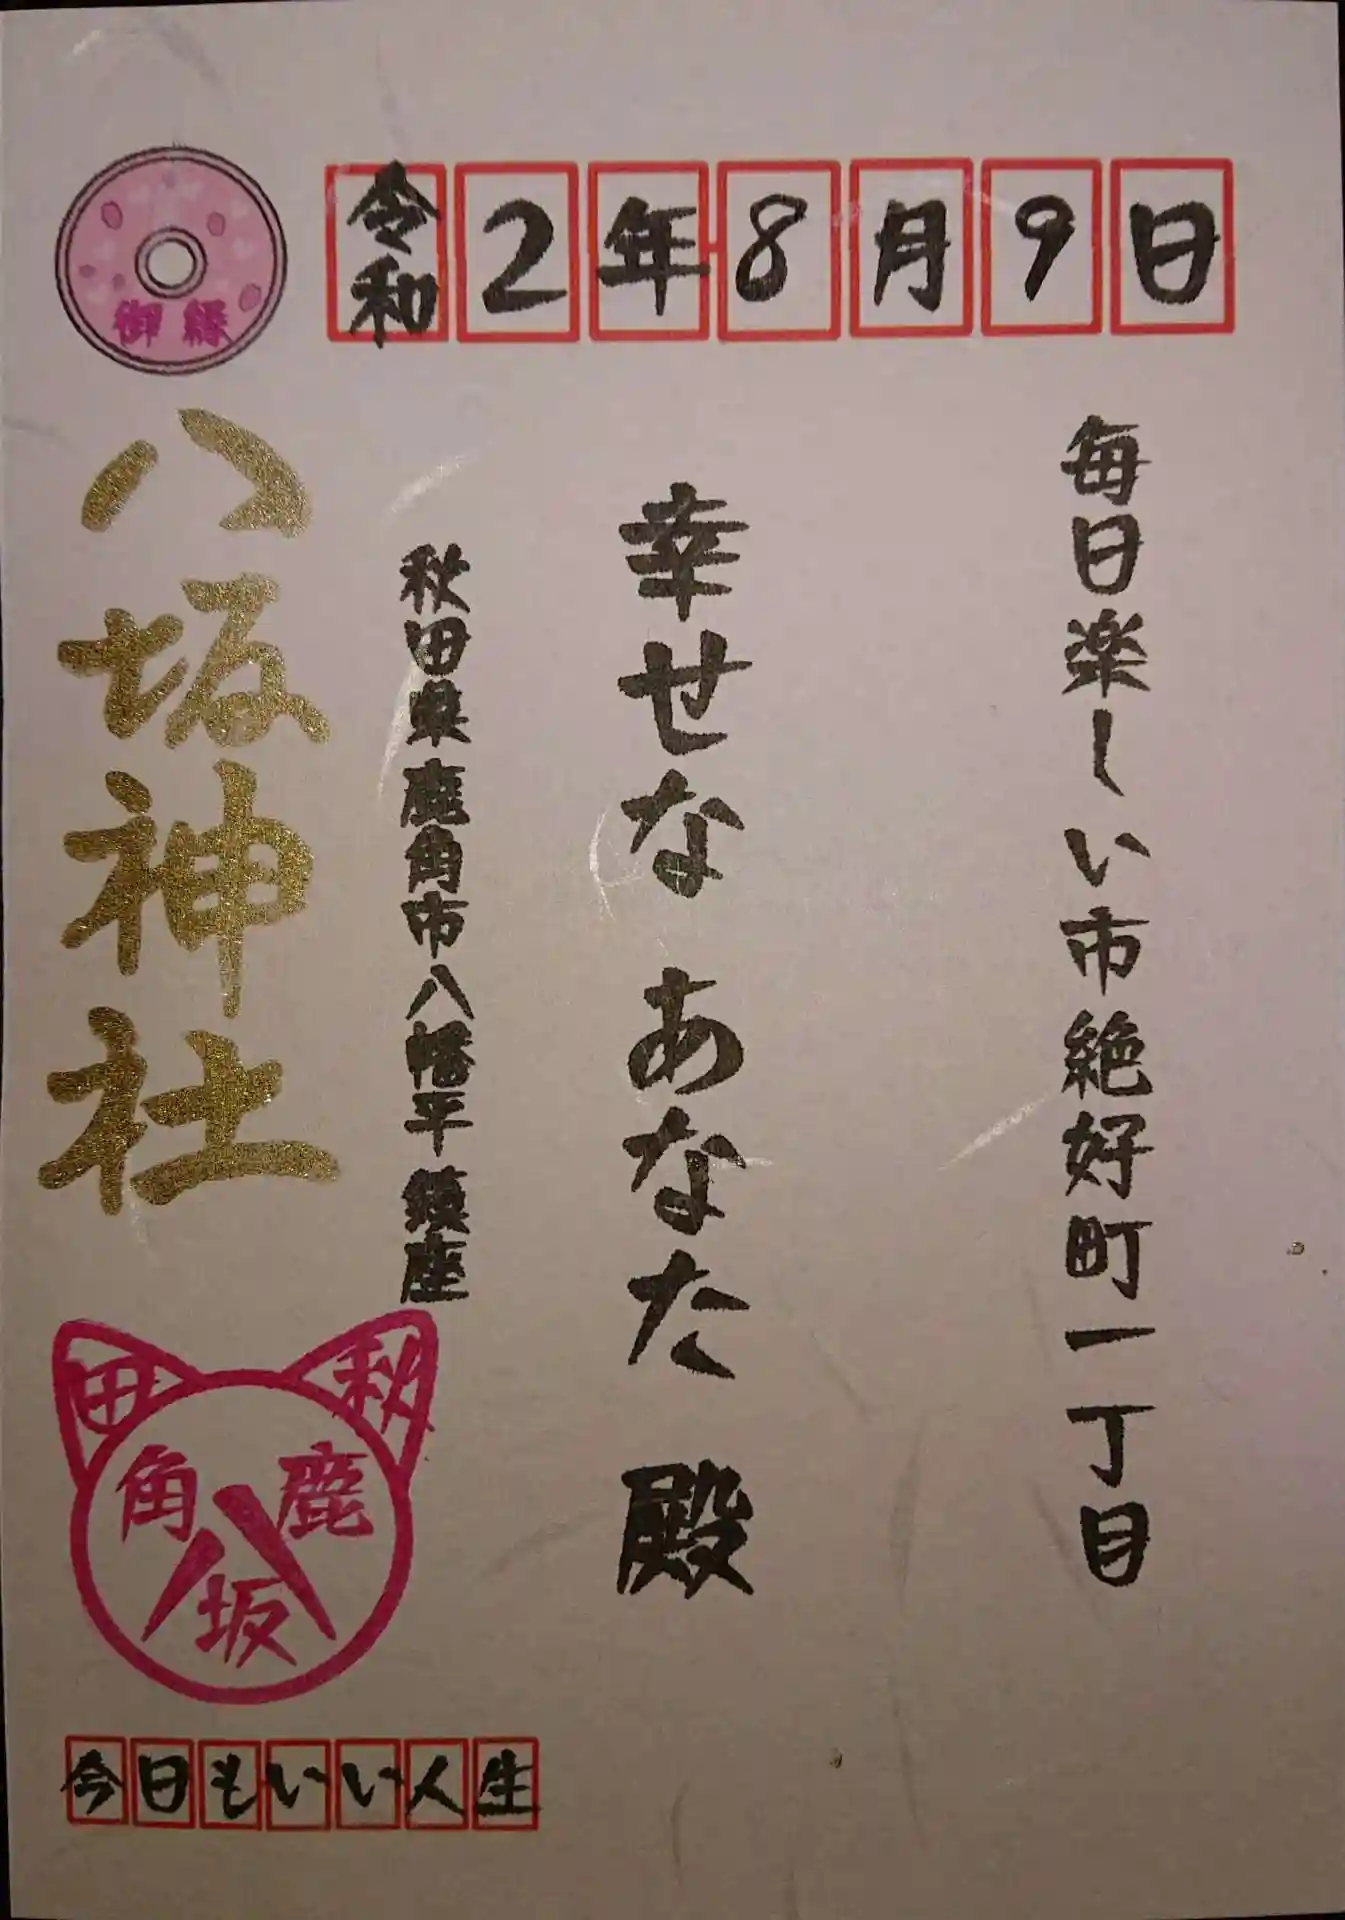 御縁
令和2年8月9日
毎日楽しい市絶好町一丁目
幸せな あなた 殿
秋田県 鹿角市八幡平 鎮座
八坂神社
秋田
鹿角
八坂
今日もいい人生